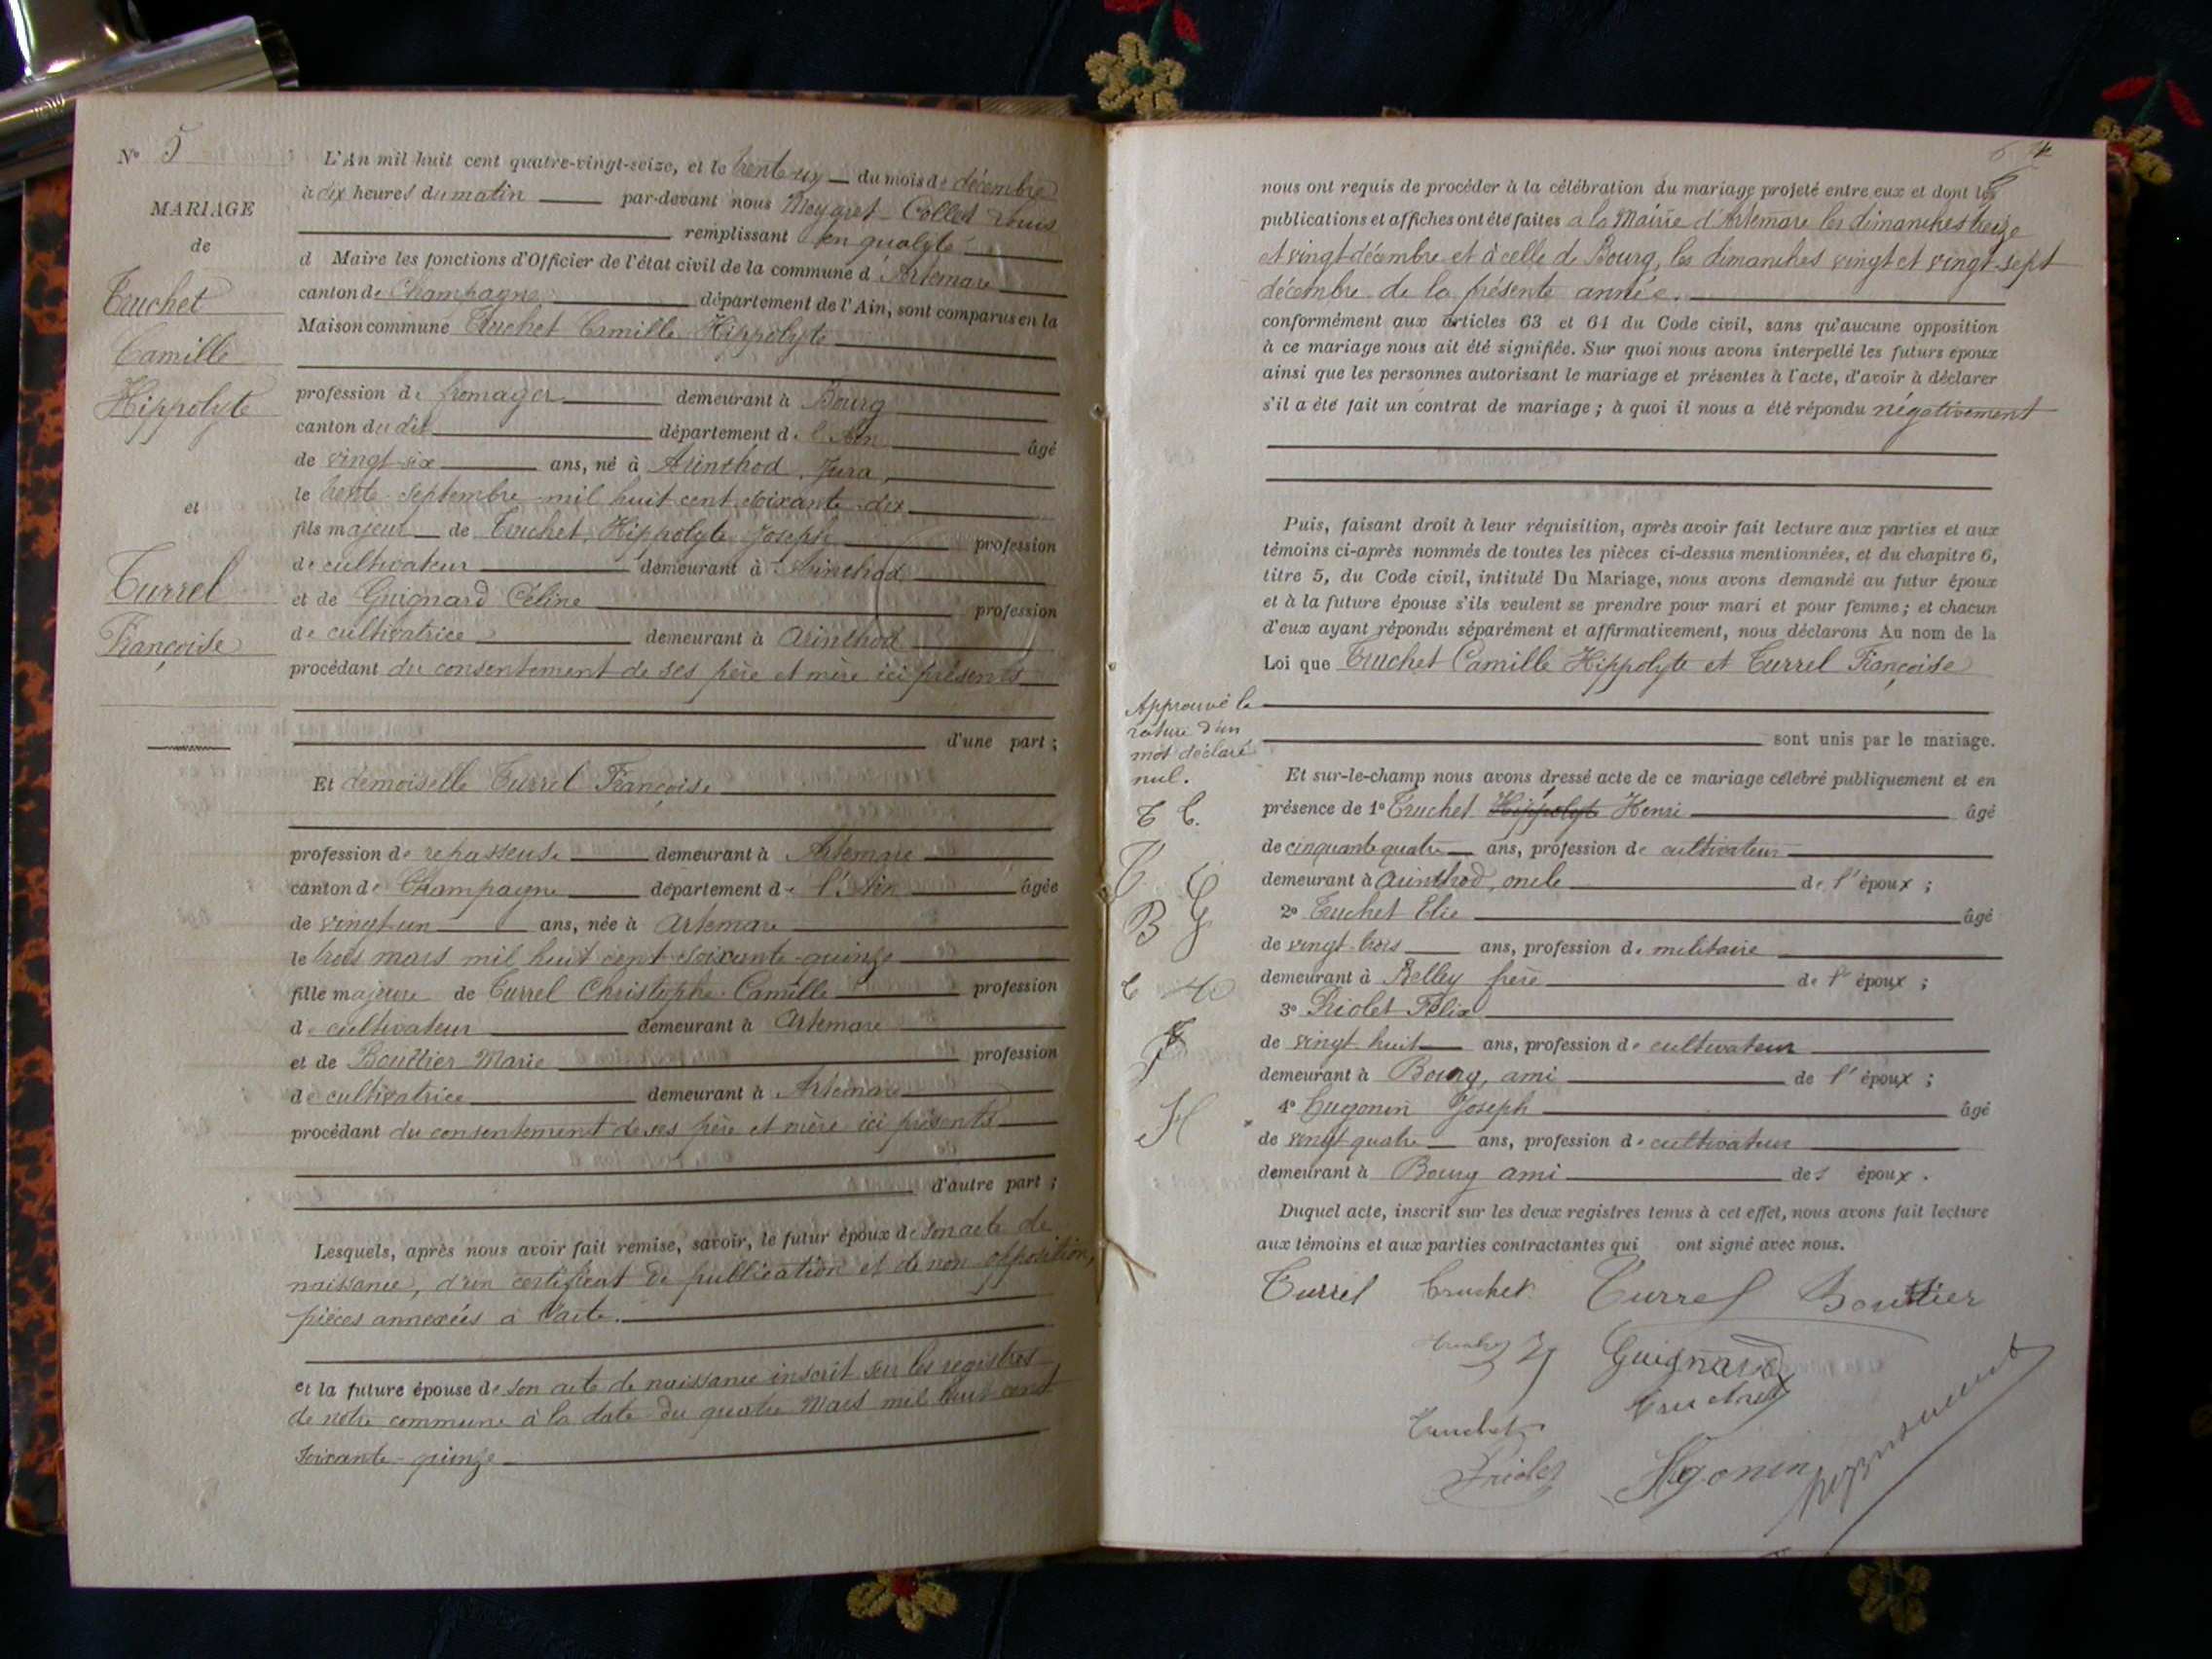 N° 5
MARIAGE
de
Truchet
Camille
Hippolyte
et
Turrel
Françoise
L'An mil huit cent quatre-vingt-seize, et le trente un du mois de décembre
à dix heures du matin par-devant nous Meygret Collet Louis
remplissant en qualité
d Maire les fonctions d'Officier de l'état civil de la commune d'Artemare
canton de Champagne département de l'Ain, sont comparus en la
Maison commune Truchet Camille Hippolyte
profession de fromager demeurant à Bourg
canton du dit département de l'Ain âgé
de vingt-six ans, né à Arinthod, Jura,
le trente septembre mil huit cent soixante-dix
fils majeur de Truchet, Hippolyte Joseph profession
de cultivateur demeurant à Arinthod
et de Guignard Céline profession
de cultivatrice demeurant à Arinthod
procédant du consentement de ses père et mère ici présents
d'une part ;
Et demoiselle Turrel Françoise
profession de repasseuse demeurant à Artemare
canton de Champagne département de l'Ain âgée
de vingt-un ans, née à Artemare
le trois mars mil huit cent soixante-quinze
fille majeure de Turrel Christophe Camille profession
de cultivateur demeurant à Artemare
et de Bouttier Marie profession
de cultivatrice demeurant à Artemare
procédant du consentement de ses père et mère ici présents
d'autre part ;
Lesquels, après nous avoir fait remise, savoir, le futur époux de son acte de
naissance, d'un certificat de publication et de non opposition,
pièces annexées à l'acte.
et la future épouse de son acte de naissance inscrit sur les registres
de notre commune à la date du quatre Mars mil huit cent
soixante-quinze
nous ont requis de procéder à la célébration du mariage projeté entre eux et dont les
publications et affiches ont été faites à la Mairie d'Artemare les dimanches treize
et vingt décembre et à celle de Bourg, les dimanches vingt et vingt-sept
décembre de la présente année.
conformément aux articles 63 et 64 du Code civil, sans qu'aucune opposition
à ce mariage nous ait été signifiée. Sur quoi nous avons interpellé les futurs époux
ainsi que les personnes autorisant le mariage et présentes à l'acte, d'avoir à déclarer
s'il a été fait un contrat de mariage ; à quoi il nous a été répondu négativement
Puis, faisant droit à leur réquisition, après avoir fait lecture aux parties et aux
témoins ci-après nommés de toutes les pièces ci-dessus mentionnées, et du chapitre 6,
titre 5, du Code civil, intitulé Du Mariage, nous avons demandé au futur époux
et à la future épouse s'ils veulent se prendre pour mari et pour femme ; et chacun
d'eux ayant répondu séparément et affirmativement, nous déclarons Au nom de la
Loi que Truchet Camille Hippolyte et Turrel Françoise
sont unis par le mariage.
Approuvé la
rature d'un
mot déclaré
nul.
T C.
T C
B G
H
Et sur-le-champ nous avons dressé acte de ce mariage célébré publiquement et en
présence de 1° Truchet Hippolyte Henri âgé
de cinquante quatre ans, profession de cultivateur
demeurant à Arinthod, oncle de l'époux ;
2° Truchet Elie âgé
de vingt-trois ans, profession de militaire
demeurant à Belley frère de l'époux ;
3° Priolet Félix
de vingt-huit ans, profession de cultivateur
demeurant à Bourg, ami de l'époux ;
4° Hugonin Joseph âgé
de vingt quatre ans, profession de cultivateur
demeurant à Bourg ami des époux.
Duquel acte, inscrit sur les deux registres tenus à cet effet, nous avons fait lecture
aux témoins et aux parties contractantes qui ont signé avec nous.
Turrel Truchet Turrel Bouttier
Guignard
Truchet
Truchet
Priolet